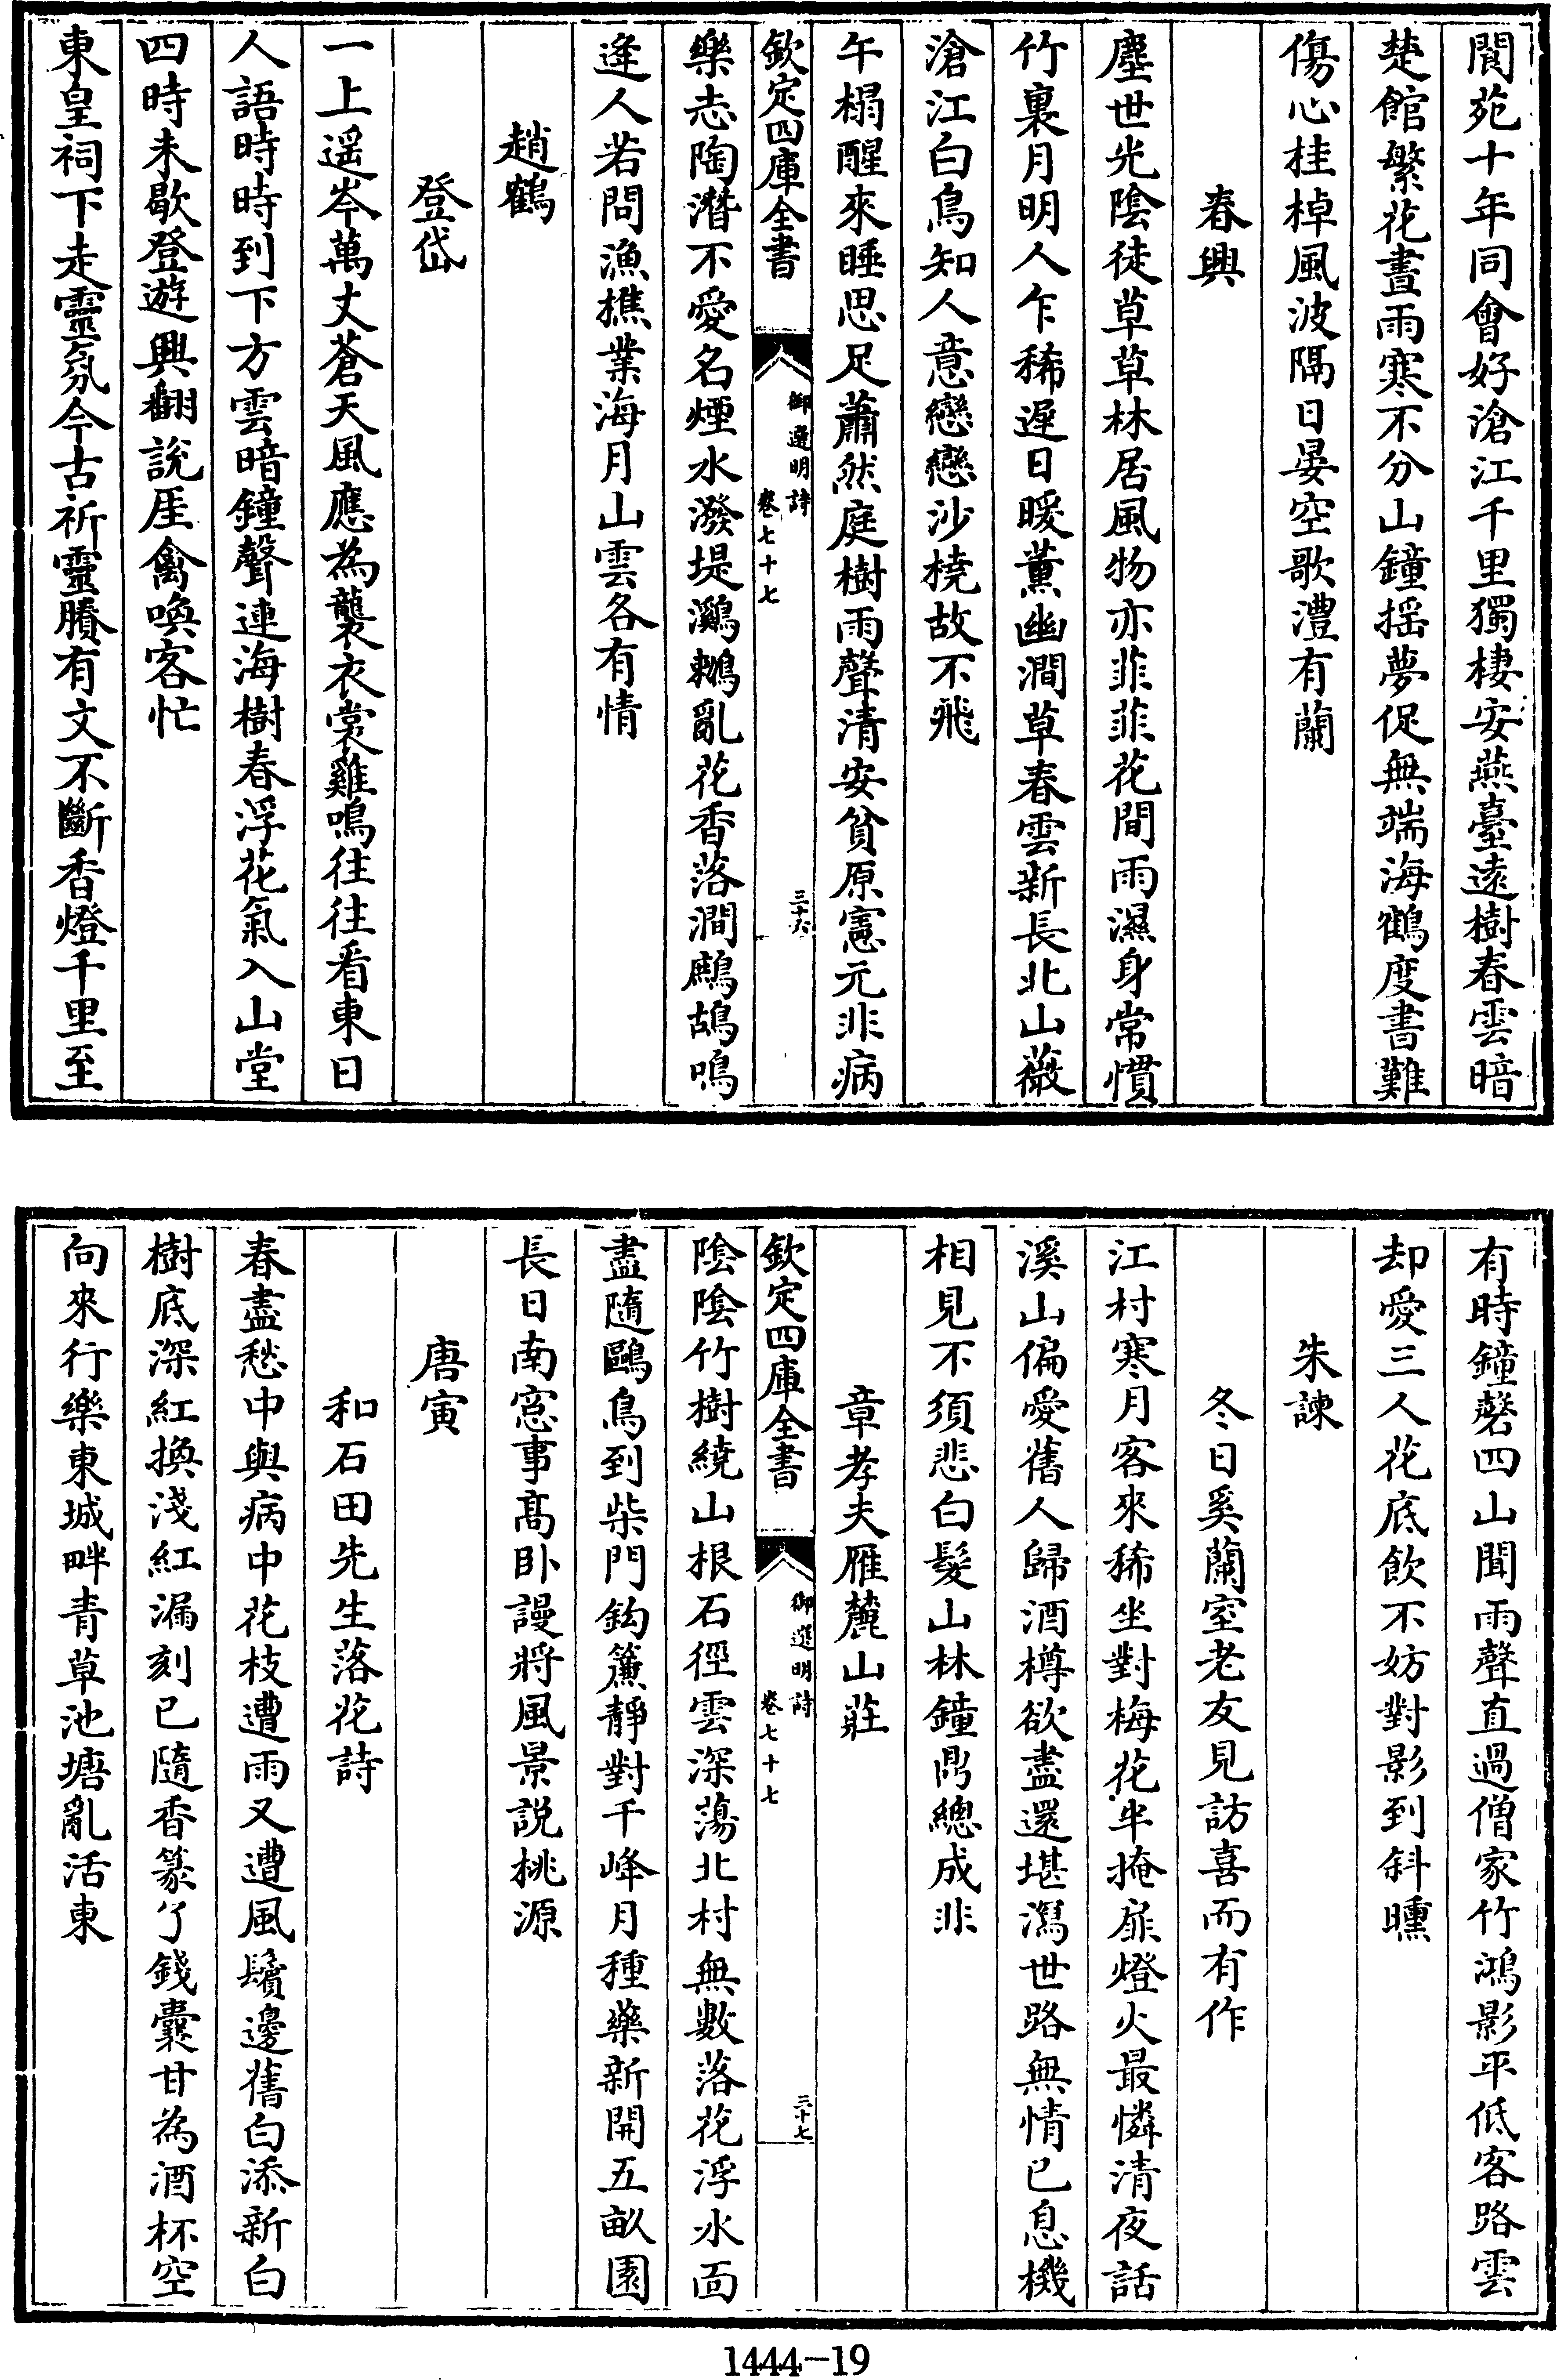 閬苑十年同會好滄江千里獨棲安燕臺遠樹春雲暗
楚館繁花晝雨寒不分山鐘揺夢促無端海鶴度書難
傷心桂棹風波隔日晏空歌澧有蘭
春興
塵世光陰徒草草林居風物亦菲菲花間雨濕身常慣
竹裏月明人乍稀遲日暖薰幽澗草春雲新長北山薇
滄江白鳥知人意戀戀沙橈故不飛
午榻醒來睡思足蕭然庭樹雨聲清安貧原憲元非病
欽定四庫全書
御選明詩
卷七十七
三十六
樂志陶潛不愛名煙水潑堤鸂鶒亂花香落澗鷓鴣鳴
逢人若問漁樵業海月山雲各有情
趙鶴
登岱
一上遥岑萬丈蒼天風應為襲衣裳雞鳴往往看東日
人語時時到下方雲暗鐘聲連海樹春浮花氣入山堂
四時未歇登遊興翻說厓禽喚客忙
東皇祠下走靈氛今古祈靈賸有文不斷香燈千里至
有時鐘磬四山聞雨聲直過僧家竹鴻影平低客路雲
却愛三人花底飲不妨對影到斜曛
朱諫
冬日奚蘭室老友見訪喜而有作
江村寒月客來稀坐對梅花半掩扉燈火最憐清夜話
溪山偏愛舊人歸酒樽欲盡還堪瀉世路無情已息機
相見不須悲白髮山林鐘鼎總成非
章孝夫雁麓山莊
欽定四庫全書
御選明詩
卷七十七
三十七
陰陰竹樹繞山根石徑雲深蕩北村無數落花浮水面
盡隨鷗鳥到柴門鈎簾靜對千峰月種藥新開五畝園
長日南窓事髙卧謾將風景説桃源
唐寅
和石田先生落花詩
春盡愁中與病中花枝遭雨又遭風鬢邊舊白添新白
樹底深紅換淺紅漏刻已隨香篆了錢囊甘為酒杯空
向來行樂東城畔青草池塘亂活東
1444-19